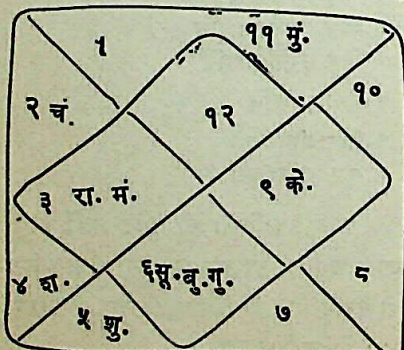 १ ११ मुं.
२ चं. १२ १०
३ रा. मं. ९ के.
४ श. ६ सू. बु. गु. ८
५ शु. ७